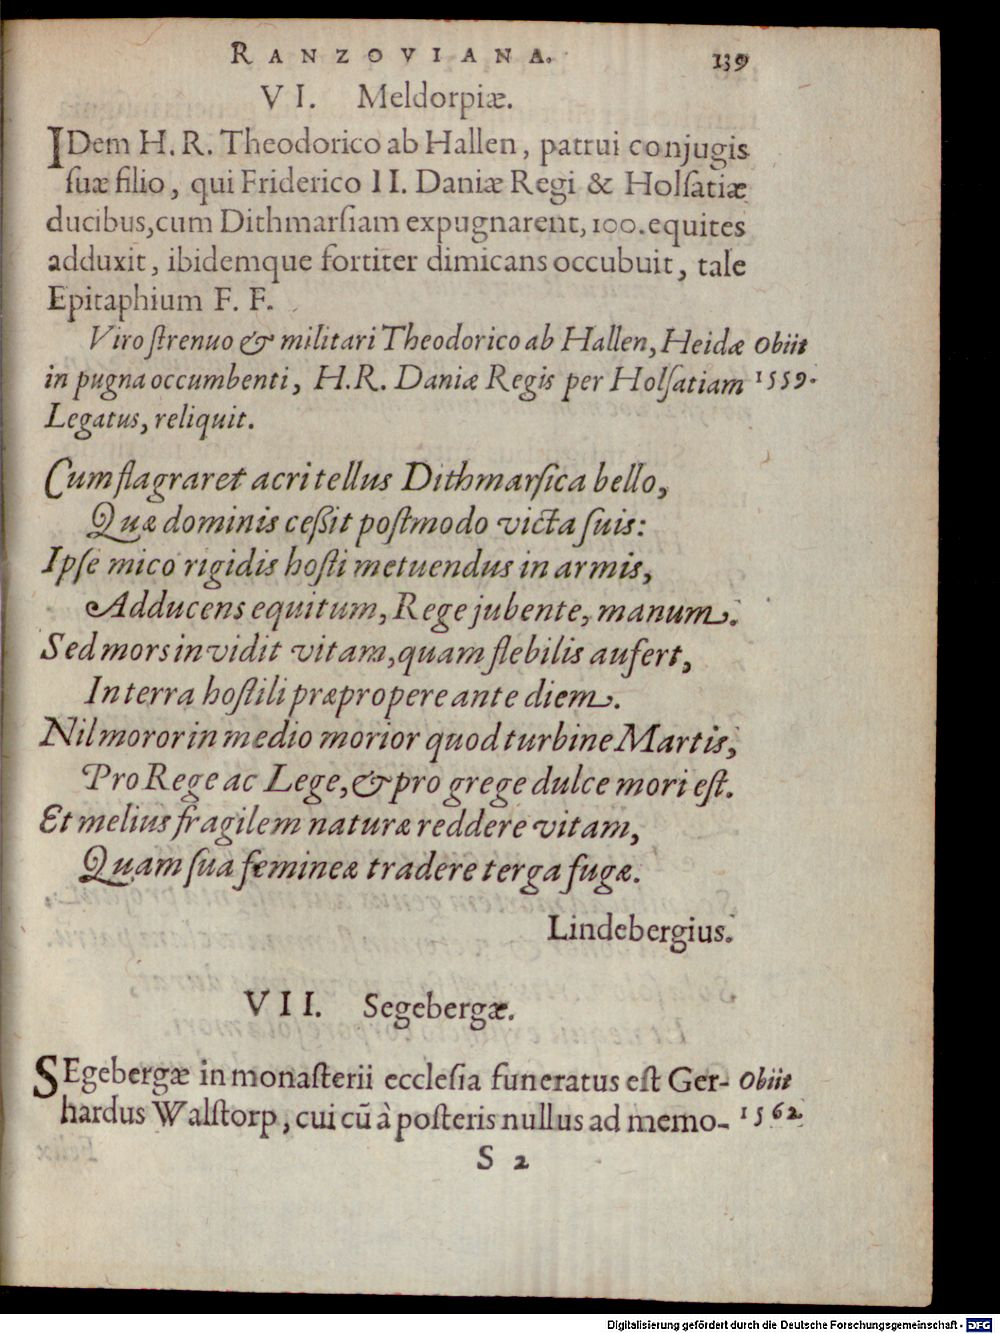 RANZOVIANA. 139
VI. Meldorpiæ.
IDem H. R. Theodorico ab Hallen, patrui conjugis
suæ filio, qui Friderico II. Daniæ Regi & Holſatiæ
ducibus, cum Dithmarſiam expugnarent, 100. equites
adduxit, ibidemque fortiter dimicans occubuit, tale
Epitaphium F. F.
Viro ſtrenuo & militari Theodorico ab Hallen, Heidæ Obiit
in pugna occumbenti, H.R. Daniæ Regis per Holſatiam 1559.
Legatus, reliquit.
Cum flagraret acri tellus Dithmarſica bello,
Quæ dominis ceßit poſtmodo victa ſuis:
Ipſe mico rigidis hoſti metuendus in armis,
Adducens equitum, Rege jubente, manum.
Sed mors invidit vitam, quam flebilis aufert,
In terra hoſtili præpropere ante diem.
Nil moror in medio morior quod turbine Martis,
Pro Rege ac Lege, & pro grege dulce mori eſt.
Et melius fragilem naturæ reddere vitam,
Quam ſua femineæ tradere terga fugæ.
Lindebergius.
VII. Segebergæ.
SEgebergæ in monaſterii eccleſia funeratus eſt Ger- Obiit
hardus Walſtorp, cui cū à poſteris nullus ad memo- 1562
S 2
Digitalisierung gefördert durch die Deutsche Forschungsgemeinschaft - DFG